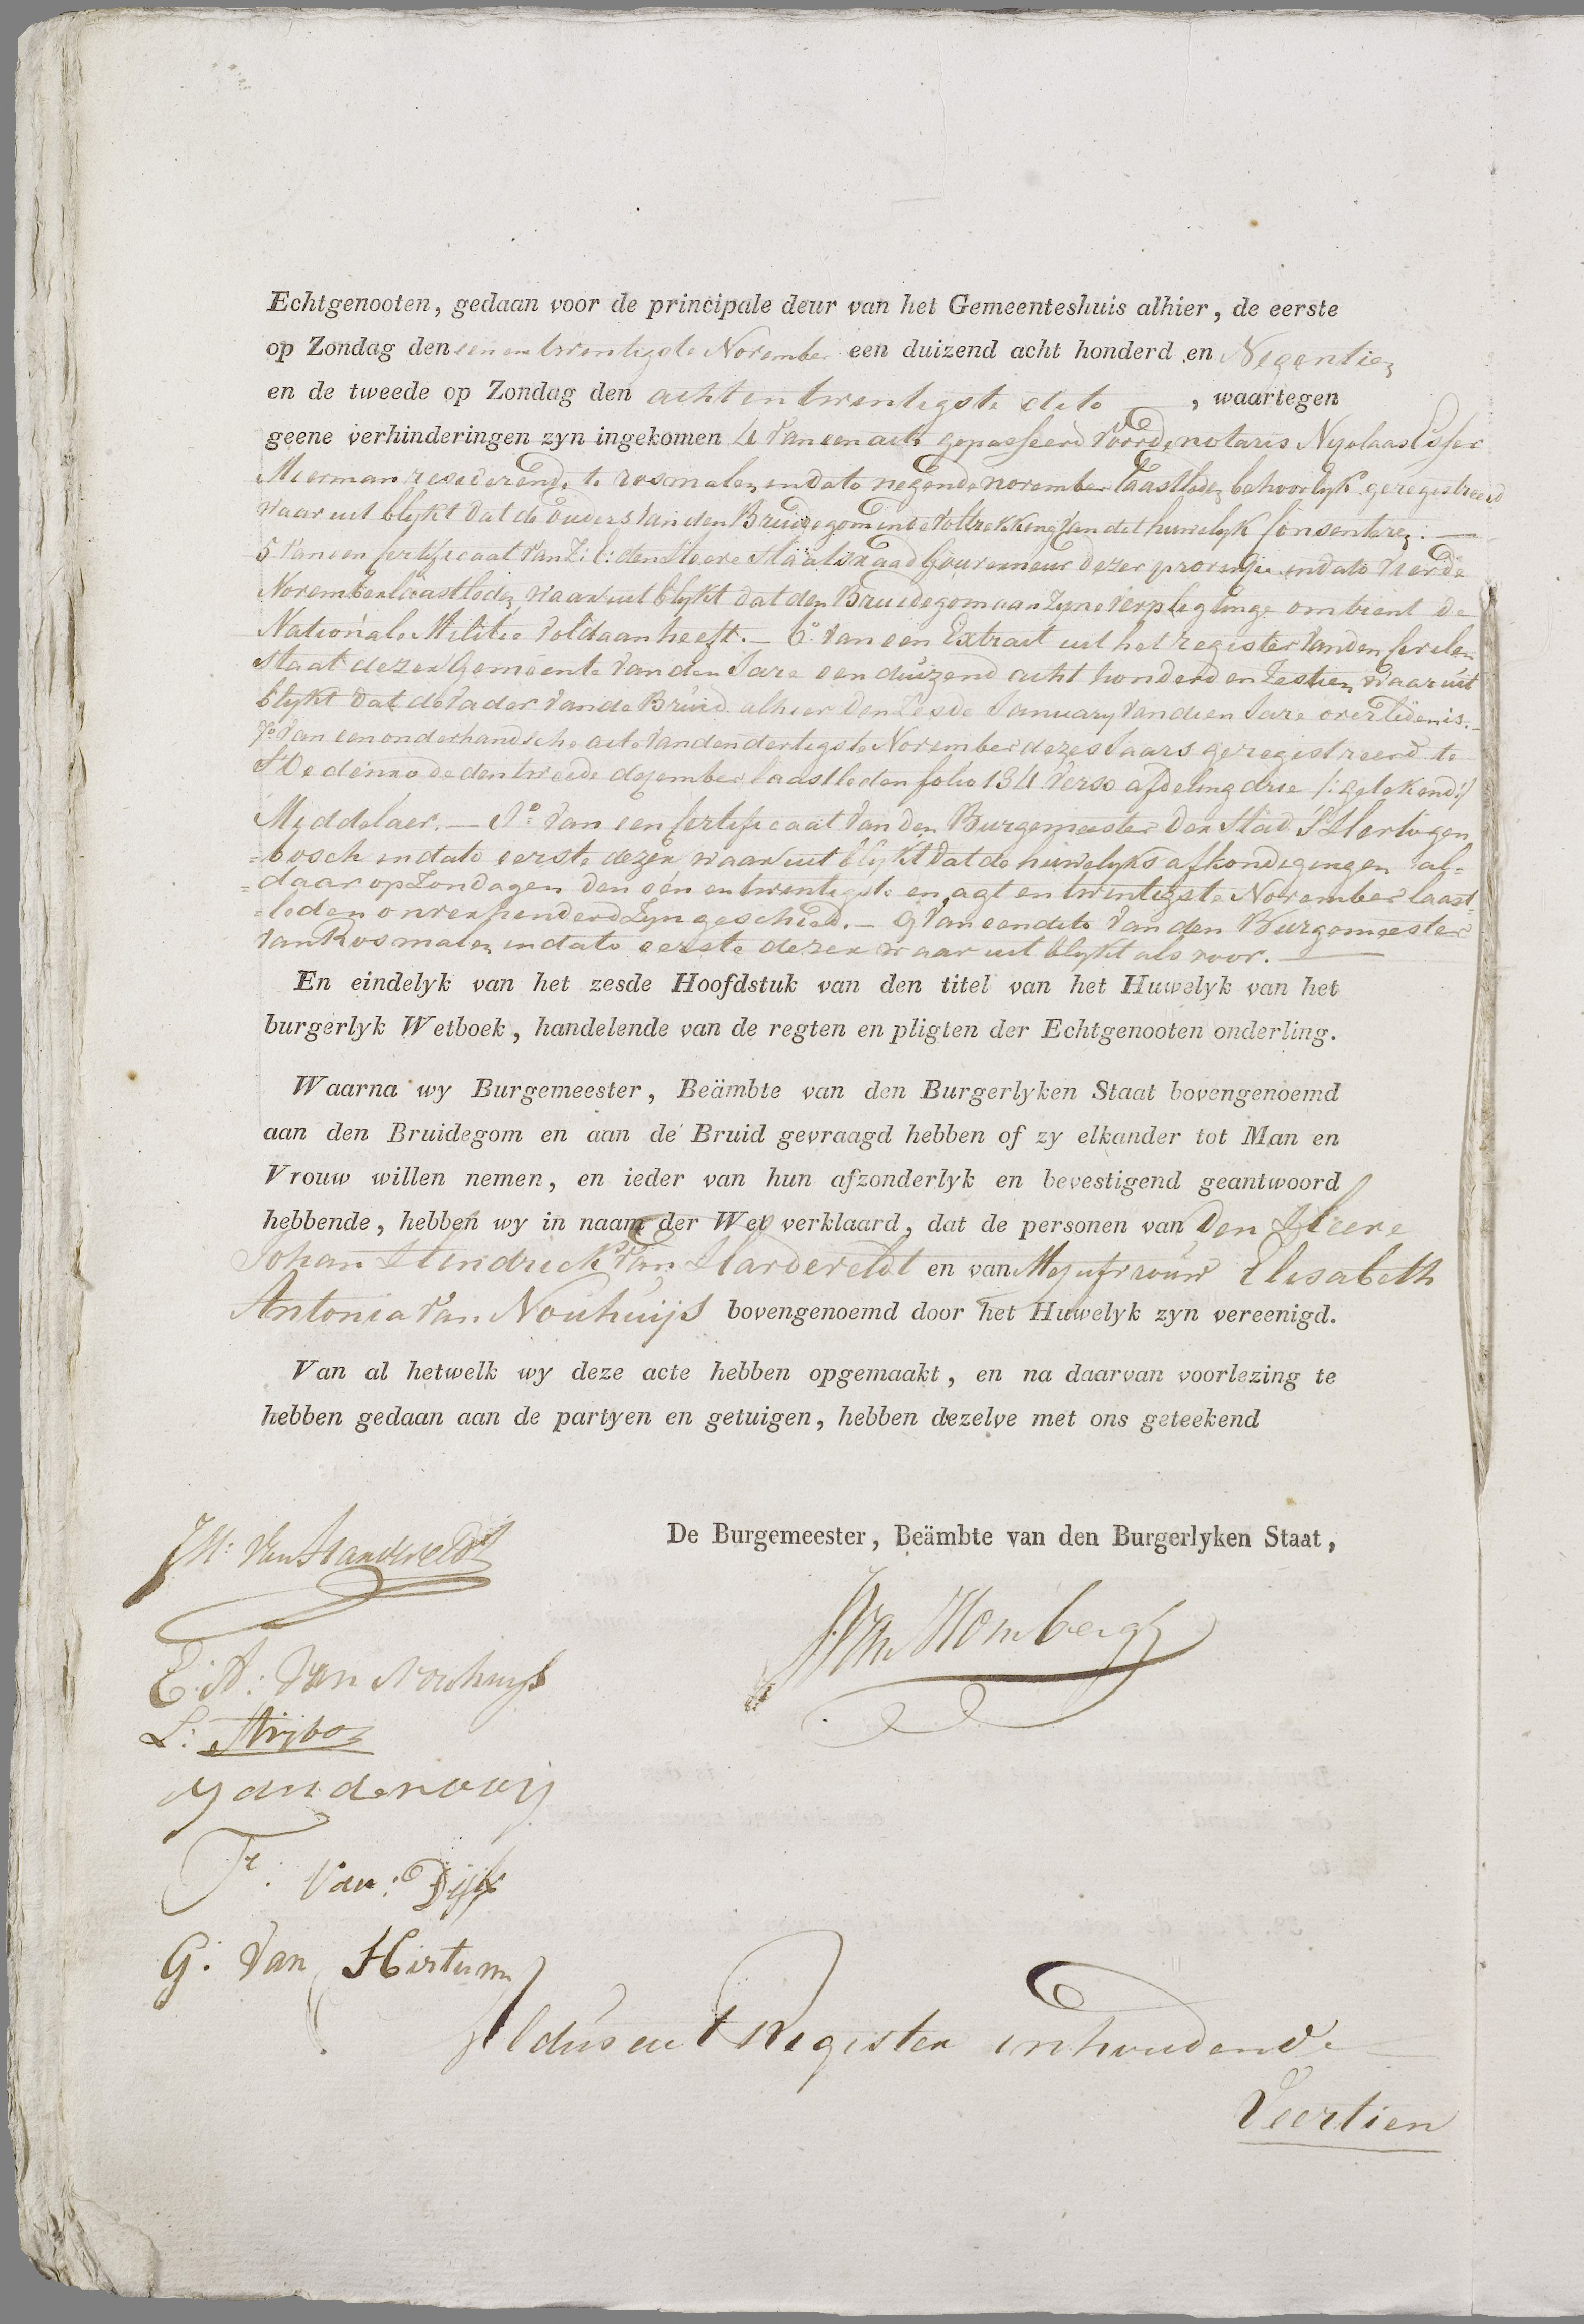 Echtgenooten, gedaan voor de principale deur van het Gemeenteshuis alhier, de eerste
op Zondag den een en twentigste November een duizend acht honderd en Negentien
en de tweede op Zondag den acht en twentigste dito, waartegen
geene verhinderingen zyn ingekomen 4 van een acte gepasseerd voor de notaris Nycolaas Esser
Mierman resederende te rosmalen in dato negende november laastleden behoorlyk geregistreerd
waar uit blykt dat de ouders van den Bruidegom in de voltrekking van dit huwelyk Consenteren. —
5 van een Certificaat van Z: E: den Heere Staatsraad Gouverneur dezer provintie in dato vierde
November laastleden waar uit blykt dat den Bruidegom aan zyne verpligtinge omtrent de
Nationale Militie voldaan heeft. — 6° van een Extrait uit het register van den Cevielen
staat dezer Gemeente van den Jare een duizend acht honderd en Zestien waar uit
blykt dat de vader van de Bruid alhier den Zesde January van dien Jare overleden is. —
7° van een onderhandsche acte van den dertigste November dezes Jaars geregistreerd te
St Oedenrode den tweede dezember laastleden folio 134 verso afdeling drie /: getekend:/
Middelaer. — 8° van een Certificaat van den Burgemeester der Stad S'Hertogen
=bosch in dato eerste dezer waar uit blykt dat de huwelyks afkondigingen al=
=daar op Zondagen den één en twentigste en agt en twentigste November laast=
=leden onverhinderd zyn geschied. — 9 van een dito van den Burgemeester
van Rosmalen in dato eerste dezer waar uit blykt als voor. —
En eindelyk van het zesde Hoofdstuk van den titel van het Huwelyk van het
burgerlyk Wetboek, handelende van de regten en pligten der Echtgenooten onderling.
Waarna wy Burgemeester, Beämbte van den Burgerlyken Staat bovengenoemd
aan den Bruidegom en aan de Bruid gevraagd hebben of zy elkander tot Man en
Vrouw willen nemen, en ieder van hun afzonderlyk en bevestigend geantwoord
hebbende, hebben wy in naam der Wet verklaard, dat de personen van Den Heere
Johan Hendrick van Hardeveldt en van Mejufrouw Elisabeth
Antonia van Nouhuijs bovengenoemd door het Huwelyk zyn vereenigd.
Van al hetwelk wy deze acte hebben opgemaakt, en na daarvan voorlezing te
hebben gedaan aan de partyen en getuigen, hebben dezelve met ons geteekend
De Burgemeester, Beämbte van den Burgerlyken Staat,
JH: van Hardeveldt
van Hombergh
E: A: van Nouhuijs
L: Strijbos
vanderooij
Fr: van: Dijk
G: van Hirtum
Aldus dit Register inhoudende
Veertien